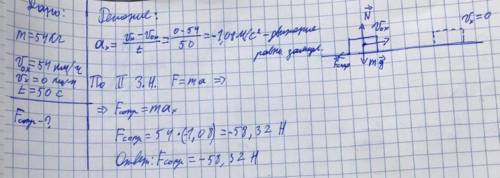 Дано:
m=54кг
V₀ₓ=54 км/ч
Vₓ=0 км/ч
t=50 с
Fсопр-?
Решение:
aₓ = (Vₓ-V₀ₓ)/t = (0-54)/50 = -1,04 м/с² - движение
равно замедл.
По II З.Н. F=ma ⇒
⇒ Fсопр=maₓ
Fсопр=54·(-1,08)=-58,32 Н
Ответ: Fсопр=-58,32 Н
N
V₀ₓ
Vₓ=0
Fсопр
mg